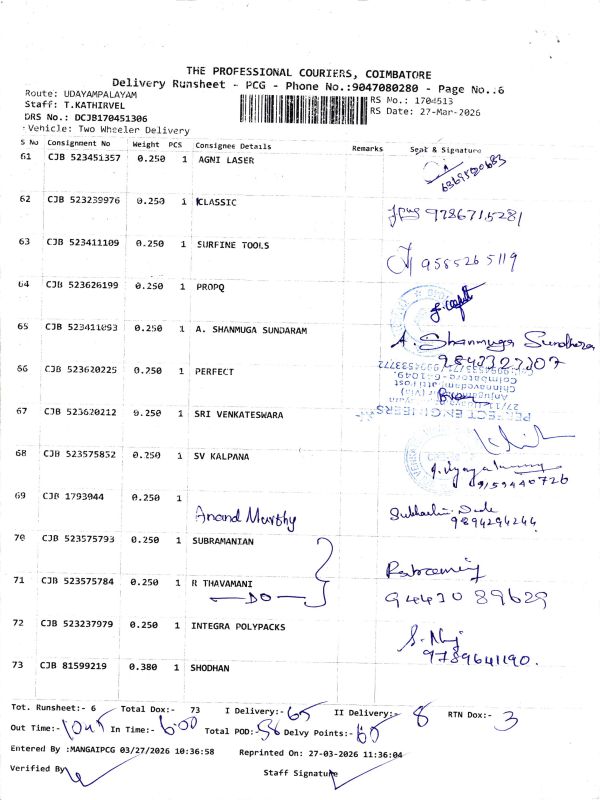 THE PROFESSIONAL COURIERS, COIMBATORE
Delivery Runsheet - PCG - Phone No.:9047080280 - Page No.:6
Route: UDAYAMPALAYAM
Staff: T.KATHIRVEL
RS No.: 1704513
DRS No.: DCJB170451306
RS Date: 27-Mar-2026
Vehicle: Two Wheeler Delivery
S No Consignment No Weight PCS Consignee Details Remarks Seal & Signature
61 CJB 523451357 0.250 1 AGNI LASER
62 CJB 523239976 0.250 1 CLASSIC 9786715281
63 CJB 523411109 0.250 1 SURFINE TOOLS 9585265119
64 CJB 523626199 0.250 1 PROPQ
65 CJB 523411093 0.250 1 A. SHANMUGA SUNDARAM A. Shanmuga Sundharam
9842327307
66 CJB 523620225 0.250 1 PERFECT
PERFECT ENGINEERS
67 CJB 523620212 0.250 1 SRI VENKATESWARA
68 CJB 523575852 0.250 1 SV KALPANA
9159440726
69 CJB 1793944 0.250 1 Anand Murthy
9894294244
70 CJB 523575793 0.250 1 SUBRAMANIAN
71 CJB 523575784 0.250 1 R THAVAMANI
DO
94430 89629
72 CJB 523237979 0.250 1 INTEGRA POLYPACKS
9789641190.
73 CJB 81599219 0.380 1 SHODHAN
Tot. Runsheet:- 6 Total Dox:- 73 I Delivery:- 65 II Delivery:- 8 RTN Dox:- 3
Out Time:- In Time:- 6:00 Total POD: 56 Delvy Points:- 60
Entered By :MANGAIPCG 03/27/2026 10:36:58 Reprinted On: 27-03-2026 11:36:04
Verified By
Staff Signature